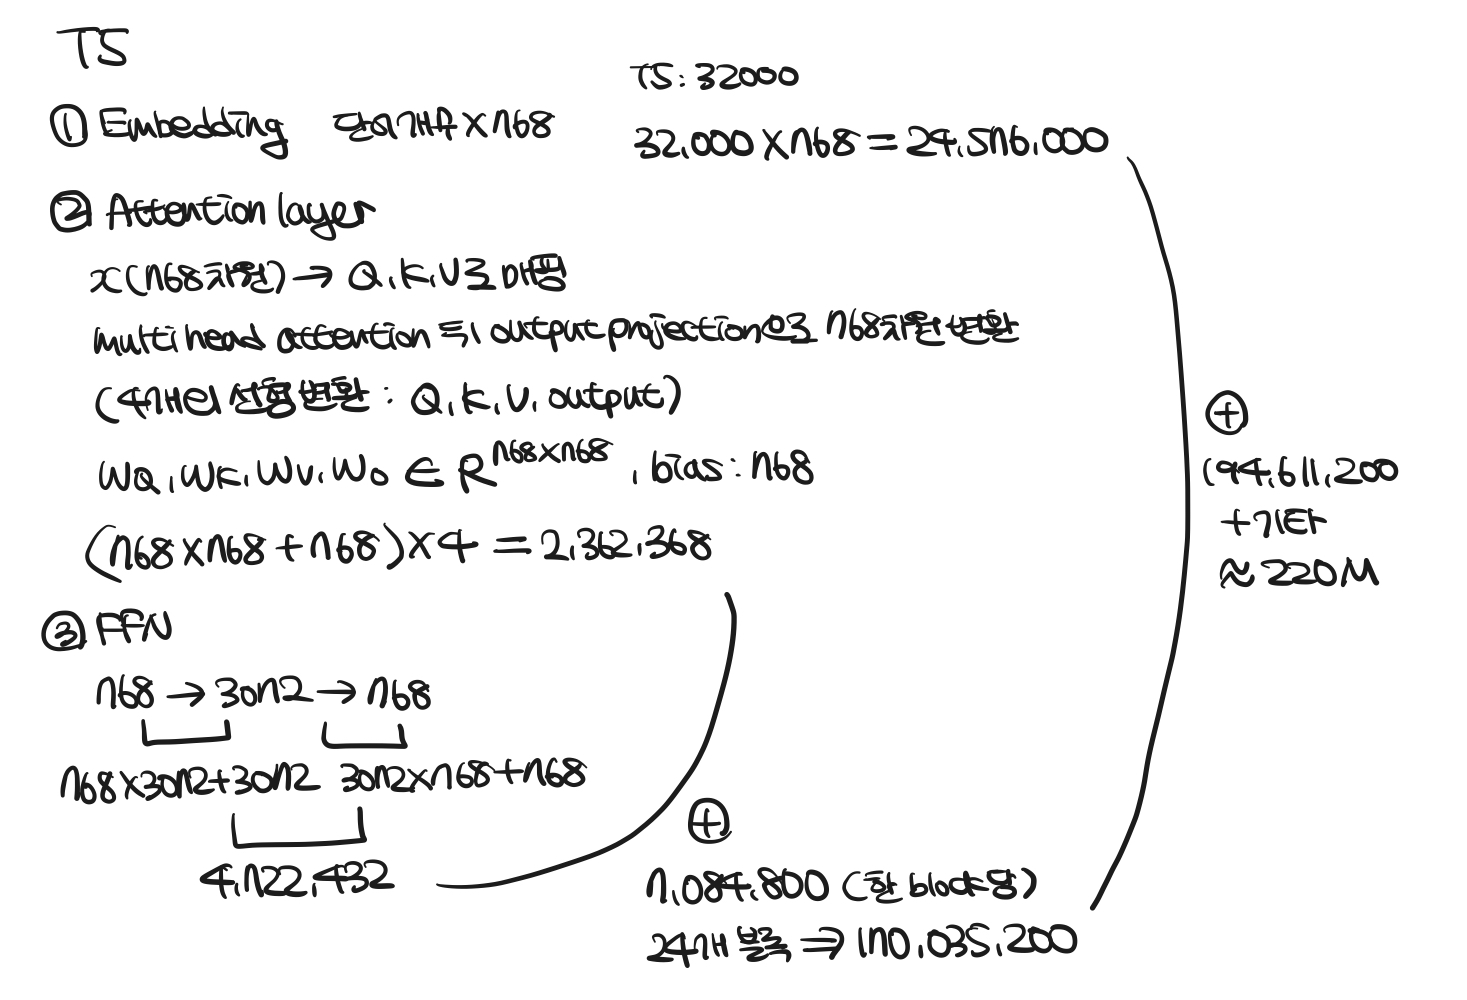 T5
① Embedding 단어개수 X 768
T5 : 32000
32,000 X 768 = 24,576,000
② Attention layer
x(768차원) → Q, K, V로 매핑
multi head attention 뒤 output projection으로 768차원 변환
(4개의 선형변환 : Q, K, V, output)
WQ, WK, WV, WO ∈ R^768X768, bias : 768
(768 X 768 + 768) X 4 = 2,362,368
③ FFN
768 → 3072 → 768
768 X 3072 + 3072 3072 X 768 + 768
4,722,432
⊕
7,084,800 (한 block당)
24개 블록 ⇒ 170,035,200
⊕
194,611,200
+ 기타
≈ 220M